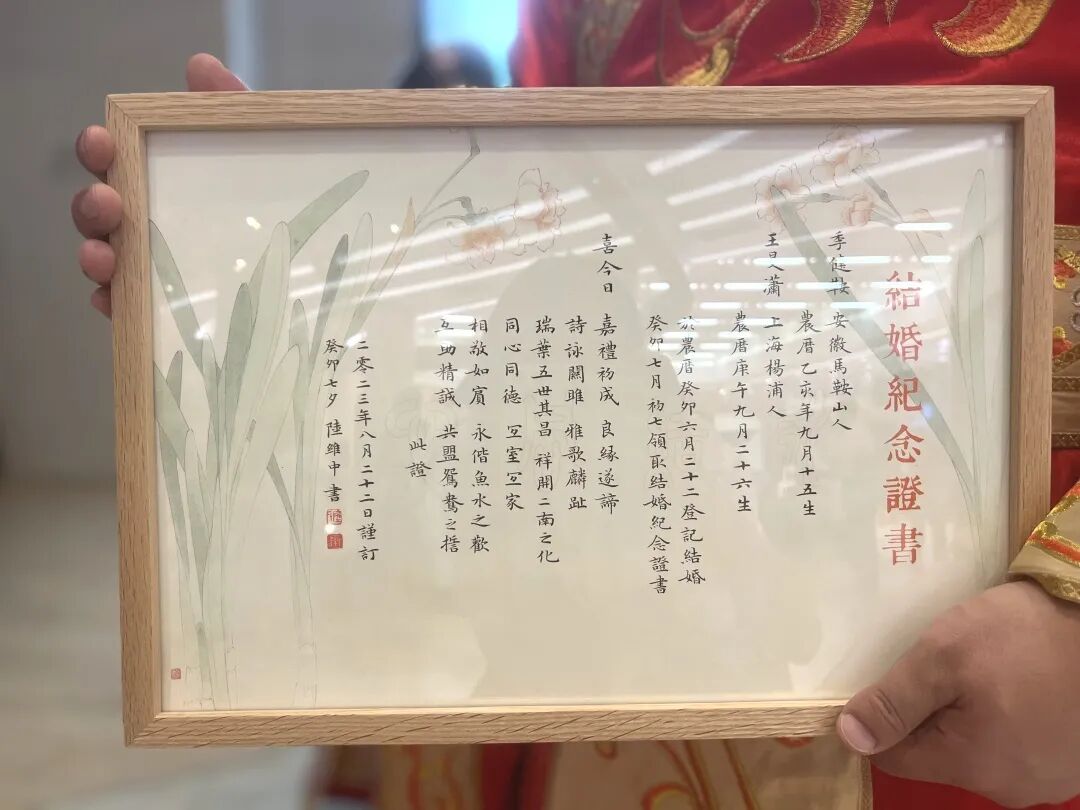 結婚紀念證書
季 鞍 安徽馬鞍山人
農曆乙亥年九月十五生
王昊瀟 上海楊浦人
農曆庚午九月二十六生
於農曆癸卯六月二十二登記結婚
癸卯七月初七領取結婚紀念證書
喜今日 嘉禮初成 良緣遂諦
詩詠關雎 雅歌麟趾
瑞葉五世其昌 祥開二南之化
同心同德 宜室宜家
相敬如賓 永偕魚水之歡
互助精誠 共盟鴛鴦之誓
此證
二零二三年八月二十二日謹訂
癸卯七夕 陸維中書